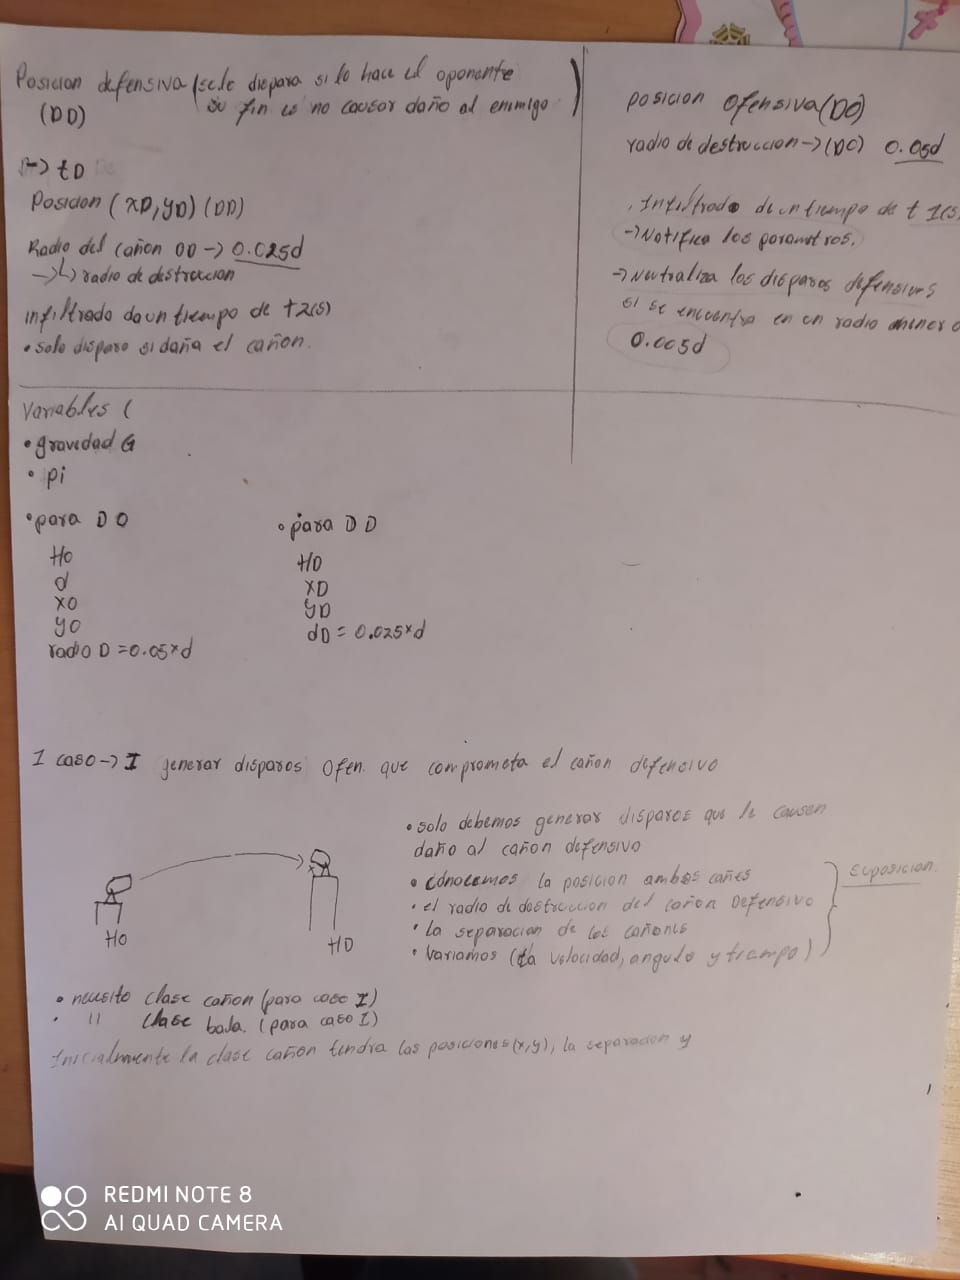 Posicion defensiva (solo dispara si lo hace el oponente
su fin es no causar daño al enemigo)
(DD)
-> tD
Posicion (xD, yD) (DD)
Radio del Cañon DD -> 0.025d
->L> radio de destruccion
infiltrado da un tiempo de t2(s)
• solo disparo si daña el cañon.
posicion Ofensiva (DO)
radio de destruccion -> (DO) 0.05d
. Infiltrado de un tiempo de t 1(s
-> Notifica los parametros.
-> Neutraliza los disparos defensivos
si se encuentra en un radio menor a
0.005d
Variables (
• gravedad G
• pi
• para DO
Ho
d
xo
yo
radio D = 0.05*d
• para DD
HD
xD
yD
dD = 0.025*d
I caso -> I generar disparos Ofen. que comprometa el cañon defensivo
Ho
HD
• solo debemos generar disparos que le causen
daño al cañon defensivo
• conocemos la posicion ambos cañes
• el radio de destruccion del cañon Defensivo
• la separacion de los cañones
• Variamos (la velocidad, angulo y tiempo)
suposicion.
• necesito clase cañon (para caso I)
• " clase bala. (para caso I)
Inicialmente la clase cañon tendra las posiciones (x,y), la separacion y
REDMI NOTE 8
AI QUAD CAMERA